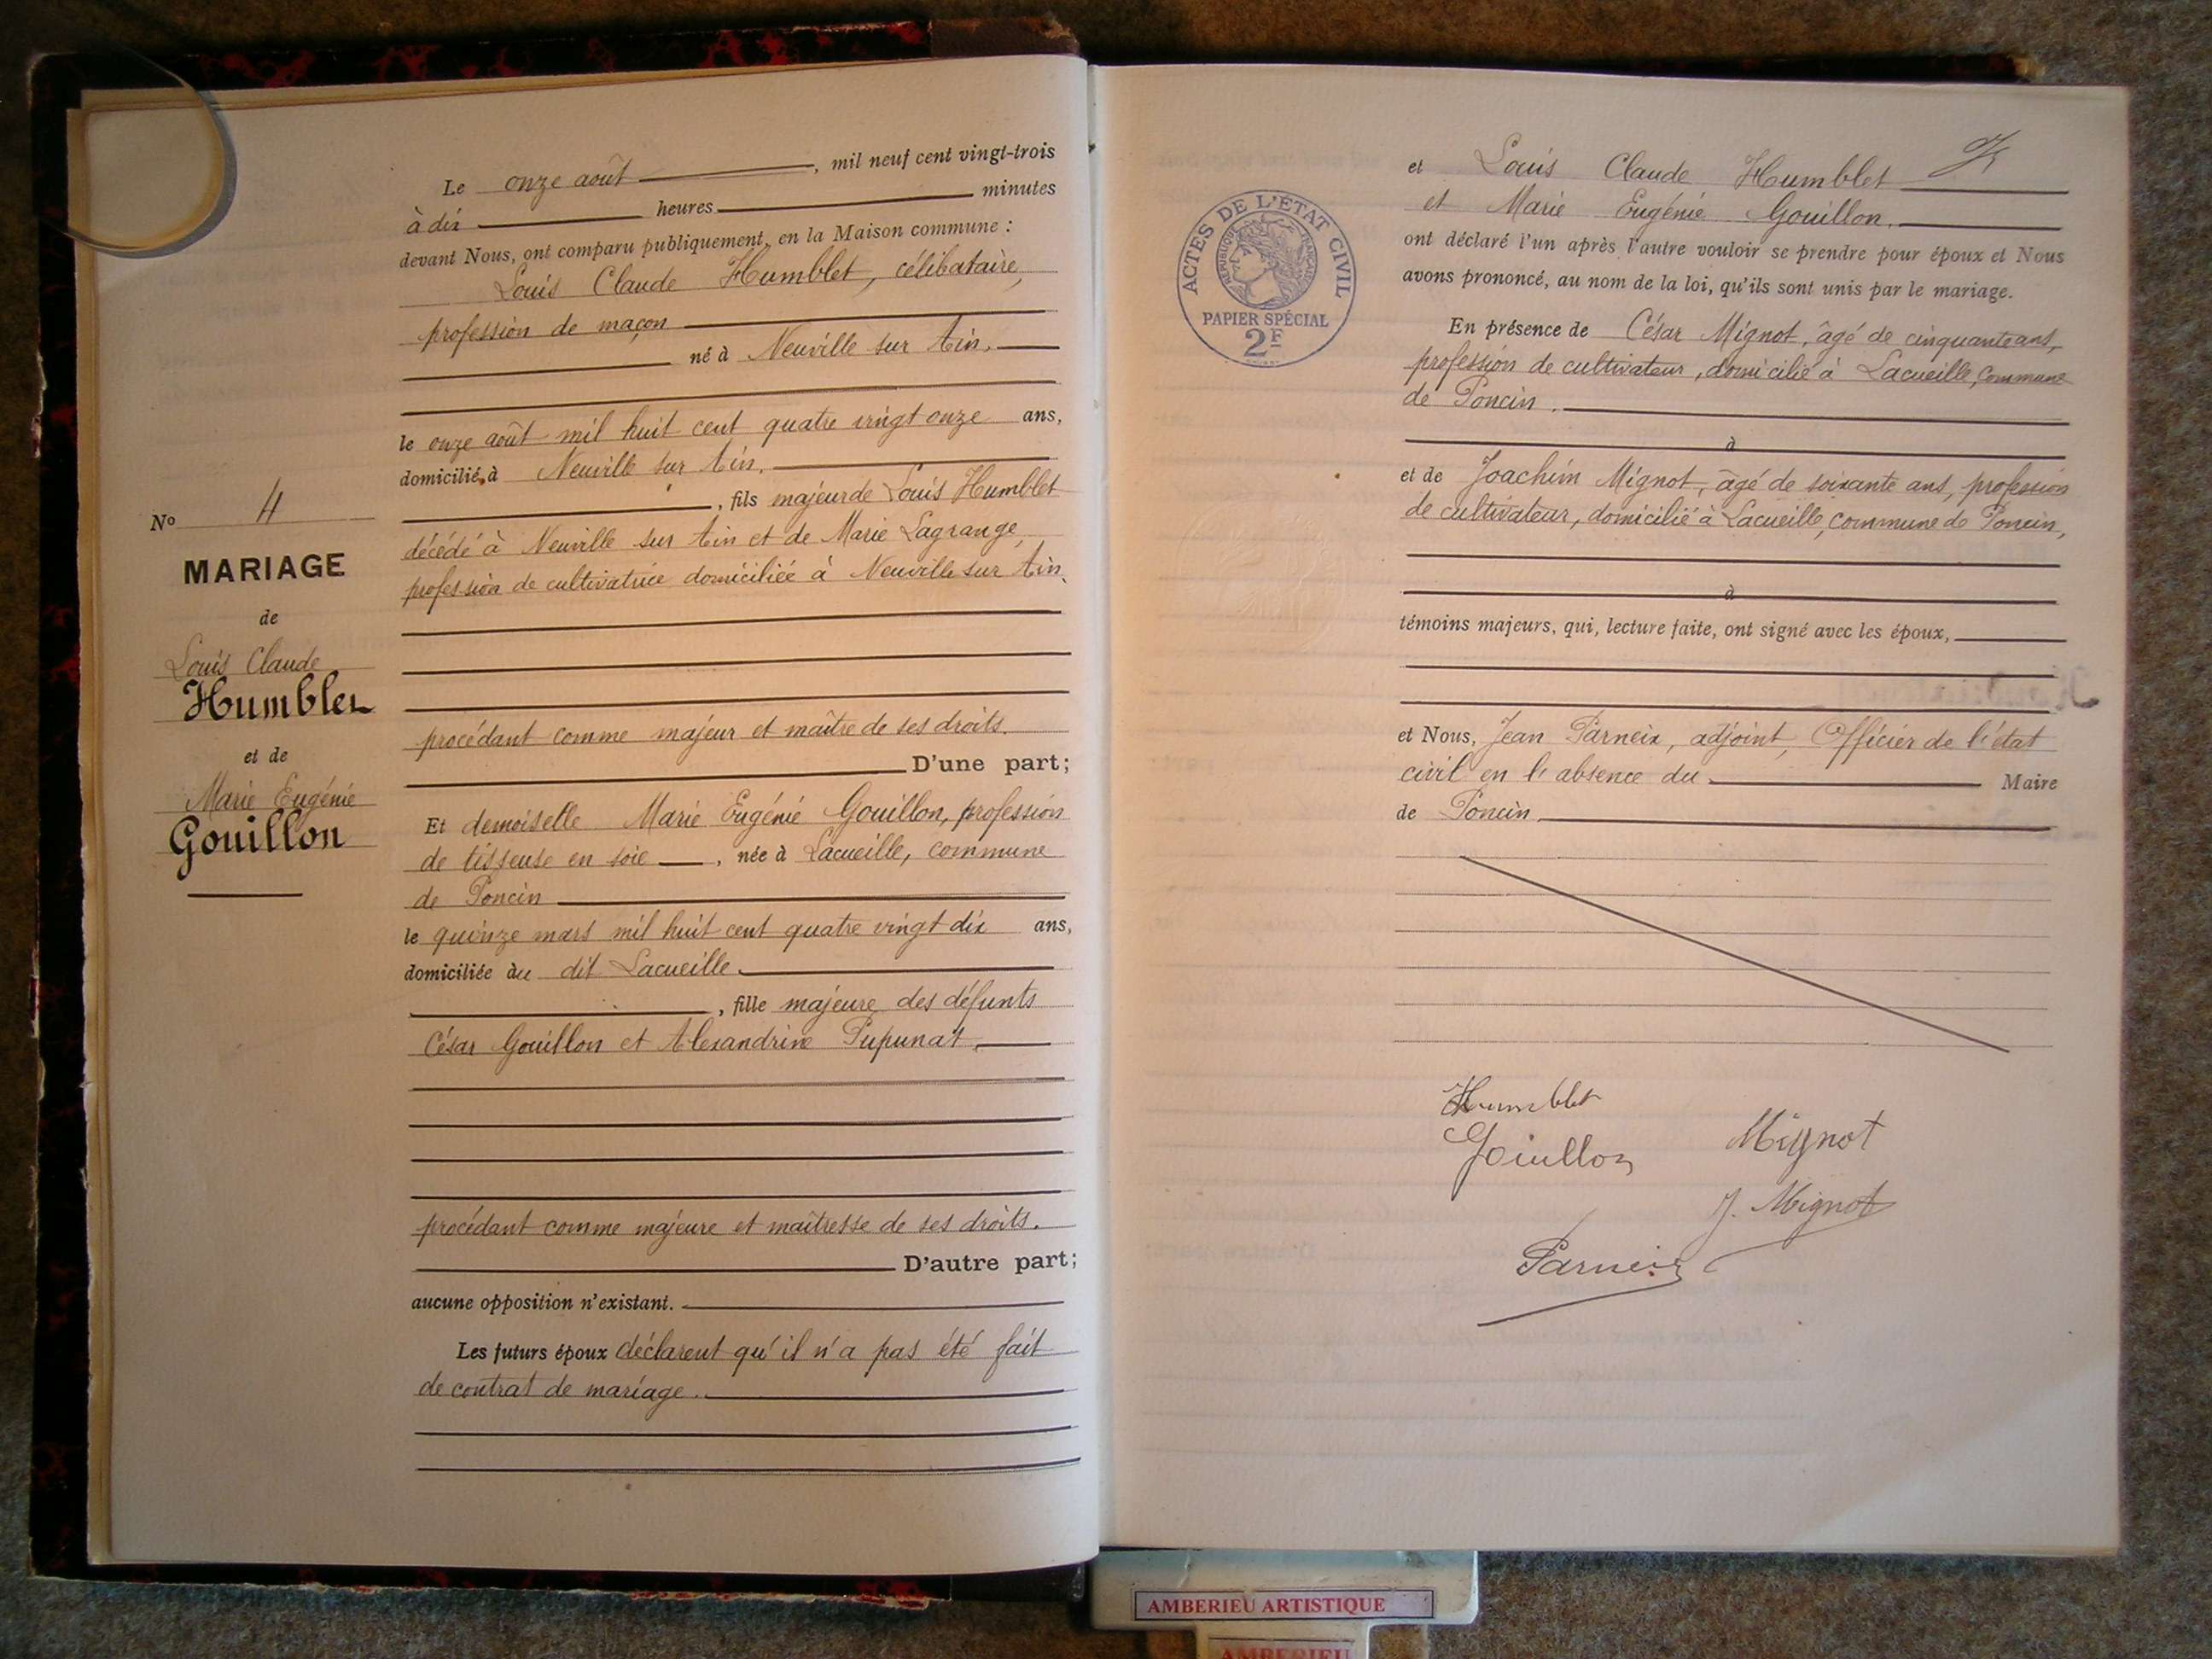 Le onze août, mil neuf cent vingt-trois
à dix heures minutes
devant Nous, ont comparu publiquement, en la Maison commune :
Louis Claude Humblet, célibataire,
profession de maçon
né à Neuville sur Ain,
le onze août mil huit cent quatre vingt onze ans,
domicilié à Neuville sur Ain,
, fils majeur de Louis Humblet
décédé à Neuville sur Ain et de Marie Lagrange,
profession de cultivatrice domiciliée à Neuville sur Ain,
procédant comme majeur et maître de ses droits.
D'une part;
Et demoiselle Marie Eugénie Gouillon, profession
de tisseuse en soie, née à Lacueille, commune
de Poncin
le quinze mars mil huit cent quatre vingt dix ans,
domiciliée àu dit Lacueille
, fille majeure des défunts
César Gouillon et Alexandrine Pupunat,
procédant comme majeure et maîtresse de ses droits.
D'autre part;
aucune opposition n'existant.
Les futurs époux déclarent qu'il n'a pas été fait
de contrat de mariage.
No 4
MARIAGE
de
Louis Claude
Humblet
et de
Marie Eugénie
Gouillon
et Louis Claude Humblet
et Marie Eugénie Gouillon,
ont déclaré l'un après l'autre vouloir se prendre pour époux et Nous
avons prononcé, au nom de la loi, qu'ils sont unis par le mariage.
En présence de César Mignot, âgé de cinquante ans,
profession de cultivateur, domicilié à Lacueille, commune
de Poncin,
à
et de Joachim Mignot, âgé de soixante ans, profession
de cultivateur, domicilié à Lacueille, commune de Poncin,
à
témoins majeurs, qui, lecture faite, ont signé avec les époux,
et Nous, Jean Parneix, adjoint, Officier de l'état
civil en l'absence du Maire
de Poncin
Humblet
Gouillon
Mignot
J. Mignot
Parneix
ACTES DE L'ÉTAT CIVIL
RÉPUBLIQUE FRANÇAISE
PAPIER SPÉCIAL
2F
AMBERIEU ARTISTIQUE
AMBERIEU